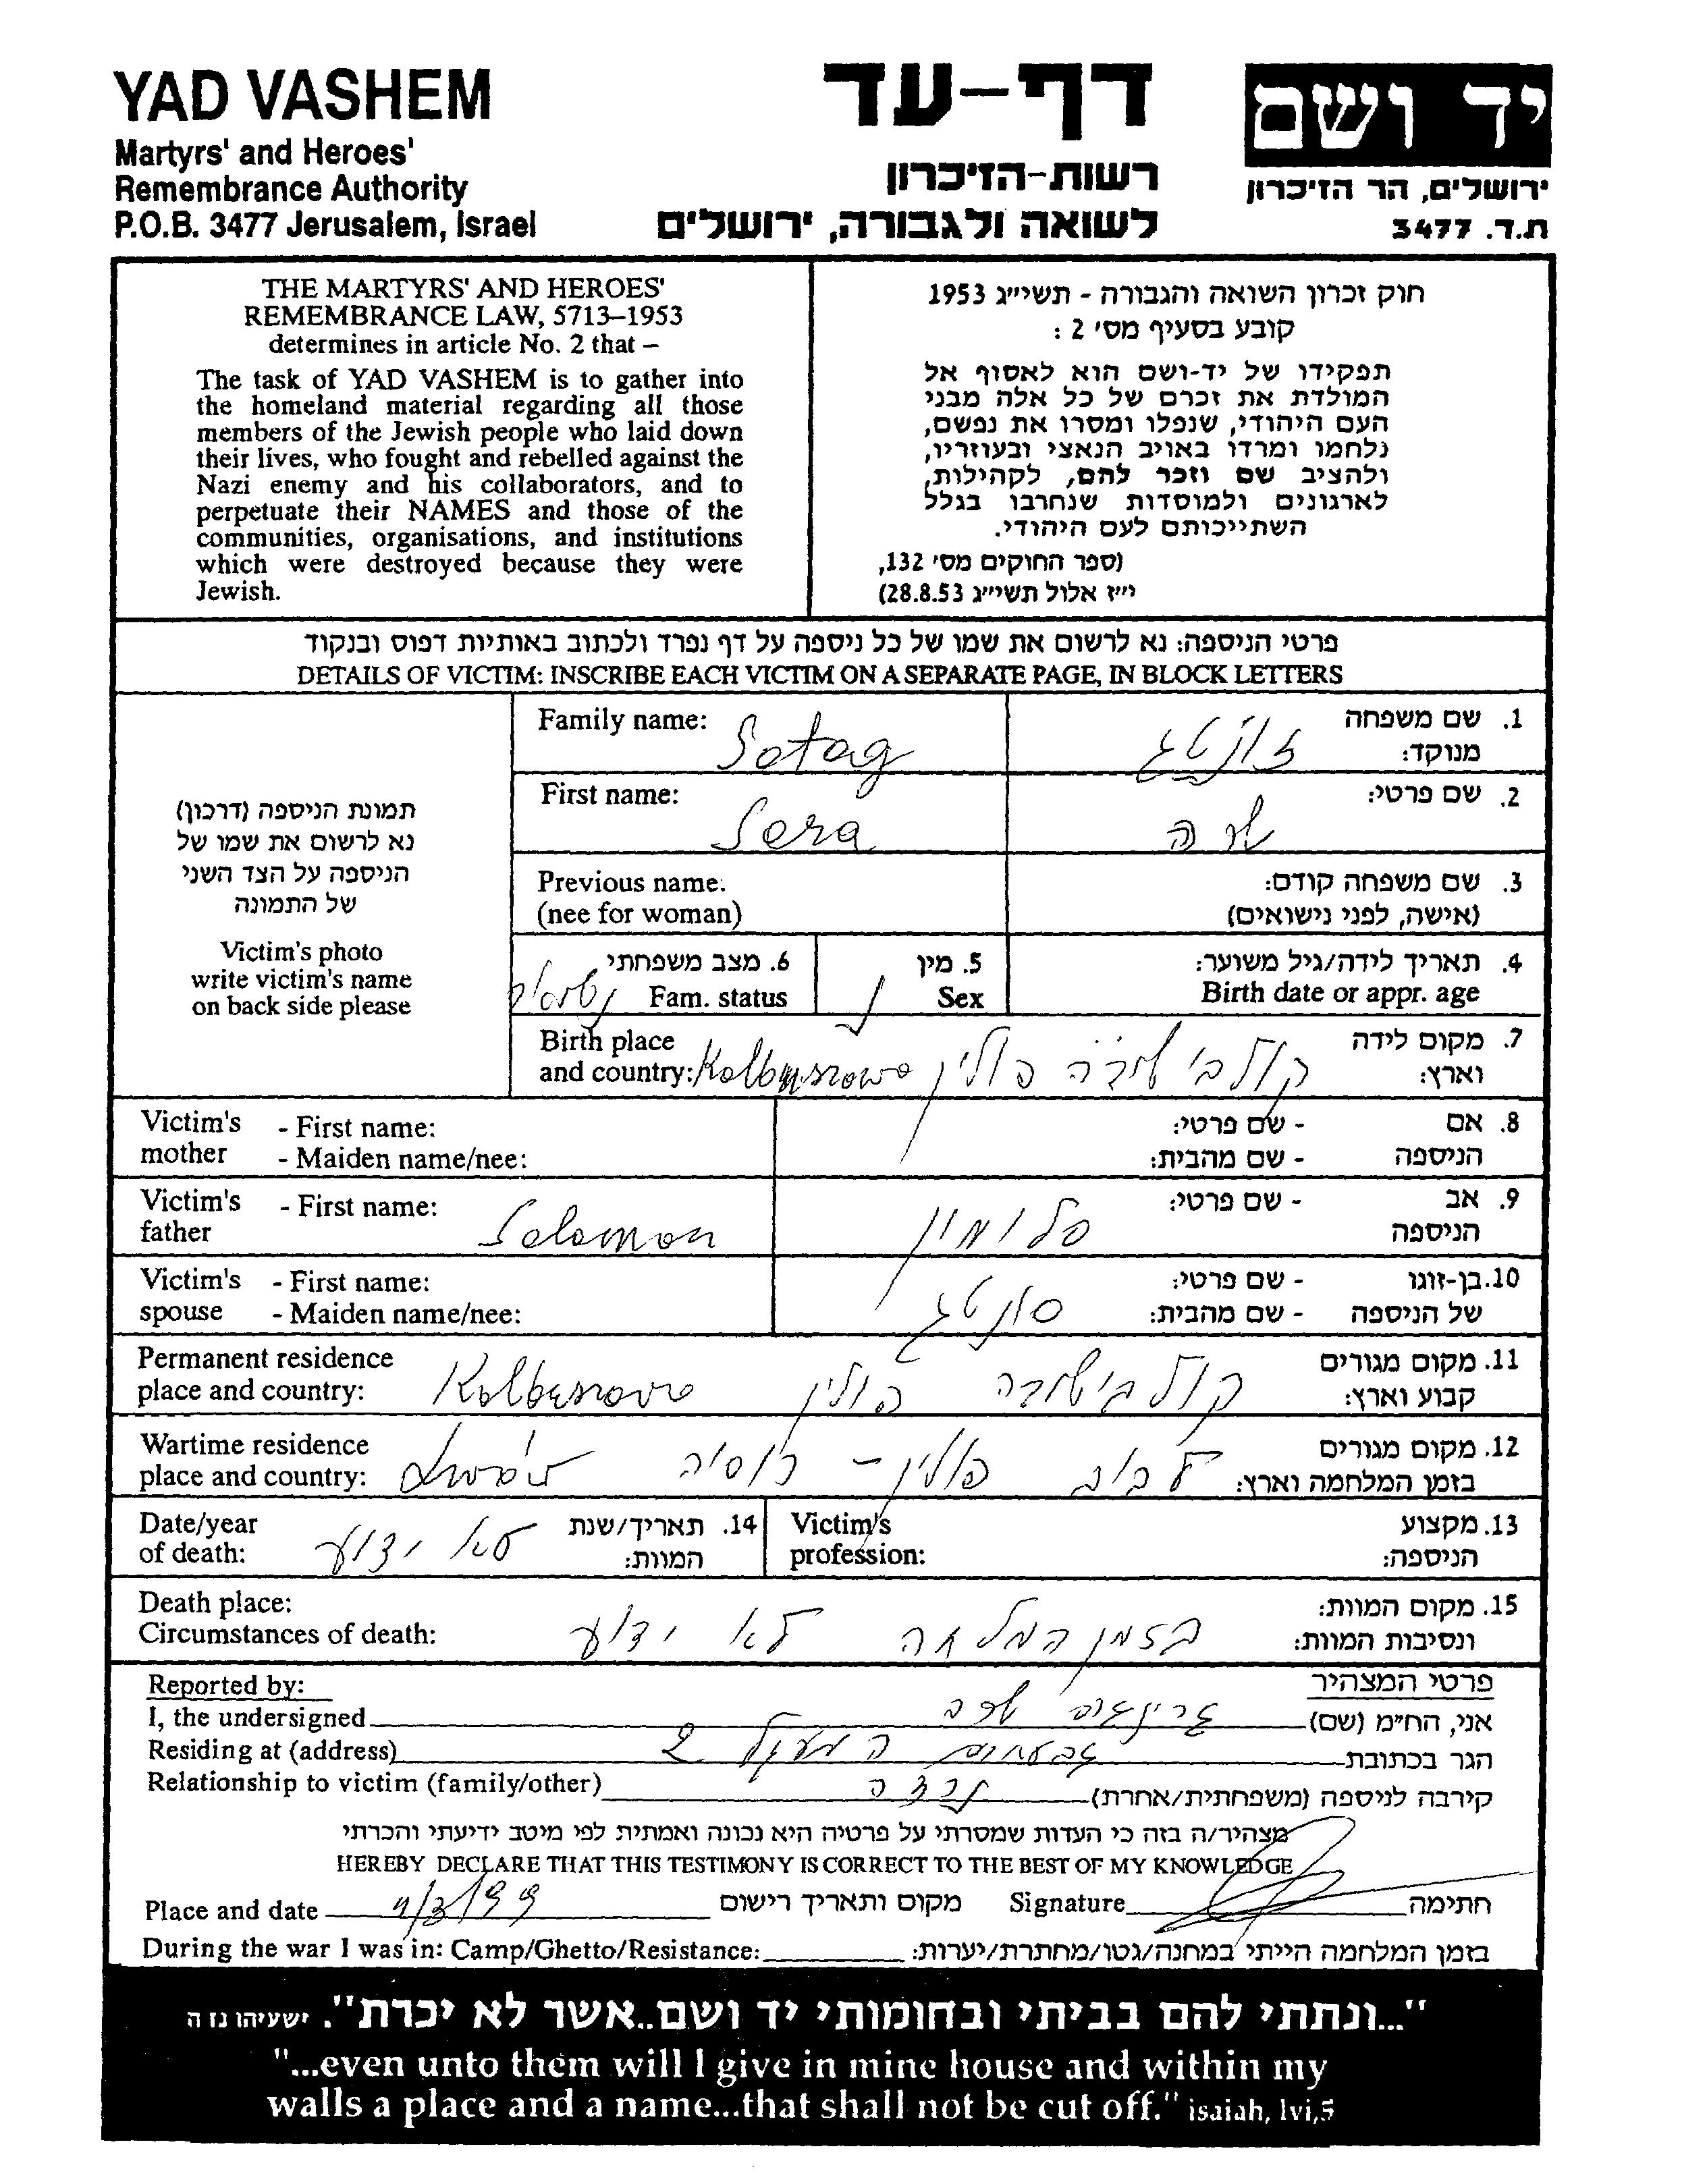 YAD VASHEM
Martyrs' and Heroes'
Remembrance Authority
P.O.B. 3477 Jerusalem, Israel
דף-עד
רשות-הזיכרון
לשואה ולגבורה, ירושלים
יד ושם
ירושלים, הר הזיכרון
ת.ד. 3477
THE MARTYRS' AND HEROES'
REMEMBRANCE LAW, 5713–1953
determines in article No. 2 that –
The task of YAD VASHEM is to gather into
the homeland material regarding all those
members of the Jewish people who laid down
their lives, who fought and rebelled against the
Nazi enemy and his collaborators, and to
perpetuate their NAMES and those of the
communities, organisations, and institutions
which were destroyed because they were
Jewish.
חוק זכרון השואה והגבורה - תשי״ג 1953
קובע בסעיף מס׳ 2 :
תפקידו של יד-ושם הוא לאסוף אל
המולדת את זכרם של כל אלה מבני
העם היהודי, שנפלו ומסרו את נפשם,
נלחמו ומרדו באויב הנאצי ובעוזריו,
ולהציב שם וזכר להם, לקהילות,
לארגונים ולמוסדות שנחרבו בגלל
השתייכותם לעם היהודי.
(ספר החוקים מס׳ 132,
י״ז אלול תשי״ג 28.8.53)
פרטי הניספה: נא לרשום את שמו של כל ניספה על דף נפרד ולכתוב באותיות דפוס ובנקוד
DETAILS OF VICTIM: INSCRIBE EACH VICTIM ON A SEPARATE PAGE, IN BLOCK LETTERS
תמונת הניספה (דרכון)
נא לרשום את שמו של
הניספה על הצד השני
של התמונה
Victim's photo
write victim's name
on back side please
Family name: Sotag
זונטג
1. שם משפחה
מנוקד:
First name: Sera
שרה
2. שם פרטי:
Previous name:
(nee for woman)
3. שם משפחה קודם:
(אישה, לפני נישואים)
6. מצב משפחתי
Fam. status
5. מין
Sex
4. תאריך לידה/גיל משוער:
Birth date or appr. age
Birth place
and country: Kolbuszowa
קולבישובה פולין
7. מקום לידה
וארץ:
Victim's - First name:
mother - Maiden name/nee:
8. אם - שם פרטי:
הניספה - שם מהבית:
Victim's - First name: Solomon
father
סלומון
9. אב - שם פרטי:
הניספה
Victim's - First name:
spouse - Maiden name/nee:
סונטג
10. בן-זוגו - שם פרטי:
של הניספה - שם מהבית:
Permanent residence
place and country: Kolbuszowa
קולבישובה פולין
11. מקום מגורים
קבוע וארץ:
Wartime residence
place and country: Lwów
לבוב פולין - רוסיה
12. מקום מגורים
בזמן המלחמה וארץ:
Date/year
of death: לא ידוע
14. תאריך/שנת
המוות:
Victim's
profession:
13. מקצוע
הניספה:
Death place:
Circumstances of death:
בזמן המלחמה לא ידוע
15. מקום המוות:
ונסיבות המוות:
Reported by:
פרטי המצהיר
I, the undersigned
אני, הח״מ (שם)
Residing at (address)
גבעתיים המעגל 2
הגר בכתובת
Relationship to victim (family/other)
נכדה
קירבה לניספה (משפחתית/אחרת)
מצהיר/ה בזה כי העדות שמסרתי על פרטיה היא נכונה ואמתית לפי מיטב ידיעתי והכרתי
HEREBY DECLARE THAT THIS TESTIMONY IS CORRECT TO THE BEST OF MY KNOWLEDGE
Place and date
מקום ותאריך רישום
Signature
חתימה
During the war I was in: Camp/Ghetto/Resistance:
בזמן המלחמה הייתי במחנה/גטו/מחתרת/יערות:
"...ונתתי להם בביתי ובחומותי יד ושם..אשר לא יכרת". ישעיהו נז ה
"...even unto them will I give in mine house and within my
walls a place and a name...that shall not be cut off." isaiah, lvi,5